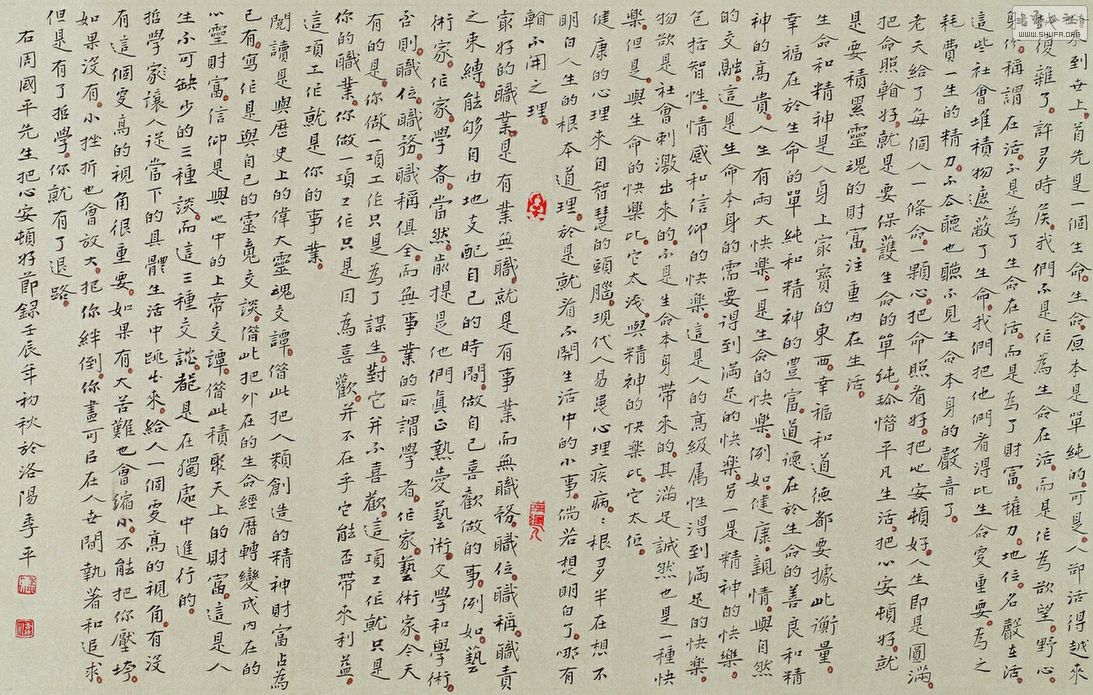 來到世上。首先是一個生命。生命原本是單純的。可是。人卻活得越來
復雜了。許多時候。我們不是作為生命在活。而是作為欲望。野心。
身份。稱謂在活。不是為了生命在活。而是為了財富。權力。地位。名聲在活。
這些社會堆積物遮蔽了生命。我們把他們看得比生命更重要。為之
耗費一生的精力。不去聽也聽不見生命本身的聲音了。
老天給了每個人一條命一顆心。把命照看好。把心安頓好。人生即是圓滿。
把命照看好。就是要保護生命的單純。珍惜平凡生活。把心安頓好。就
是要積累靈魂的財富。注重內在生活。
生命和精神是人身上最寶的東西。幸福和道德都要據此衡量。
幸福在於生命的單純和精神的豐富。道德在於生命的善良和精
神的高貴。人生有兩大快樂。一是生命的快樂。例如健康。親情。與自然
的交融。這是生命本身的需要得到滿足的快樂。另一是精神的快樂。
包括智性。情感和信仰的快樂。這是人的高級属性得到滿足的快樂。
物欲是社會刺激出來的。不是生命本身帶來的。其滿足誠然也是一種快
樂。但是。與生命的快樂比。它太淺。與精神的快樂比。它太低。
健康的心理來自智慧的頭腦。現代人易患心理疾病。根多半在想不
明白人生的根本道理。於是就看不開生活中的小事。倘若想明白了。哪有
看不開之理。
最好的職業是有業無職。就是有事業而無職務。職位。職稱。職責
之束縛。能夠自由地支配自己的時間。做自己喜歡做的事。例如。藝
術家。作家。學者。當然。前提是他們真正熱愛藝術。文學和學術。
否則。職位。職務。職稱俱全。而無事業的所謂學者。作家。藝術家。今天
有的是。你做一項工作只是為了謀生。對它并不喜歡。這項工作就只是
你的職業。你做一項工作只是因為喜歡。并不在乎它能否帶來利益。
這項工作就是你的事業。
閱讀是與歷史上的偉大靈魂交譚。借此把人類創造的精神財富占為
己有。寫作是與自己的靈魂交談。借此把外在的生命經歷轉變成內在的
心靈財富。信仰是與心中的上帝交譚。借此積聚天上的財富。這是人
生不可缺少的三種談。而這三種交談。都是在獨處中進行的。
哲學家讓人從當下的具體生活中跳出來。給人一個更高的視角。有沒
有這個更高的視角很重要。如果有。大苦難也會縮小。不能把你壓垮。
如果沒有。小挫折也會放大。把你絆倒。你盡可以在人世間執著和追求。
但是。有了哲學。你就有了退路。
右周國平先生把心安頓好節錄壬辰年初秋於洛陽季平
WWW.SHUFA.ORG